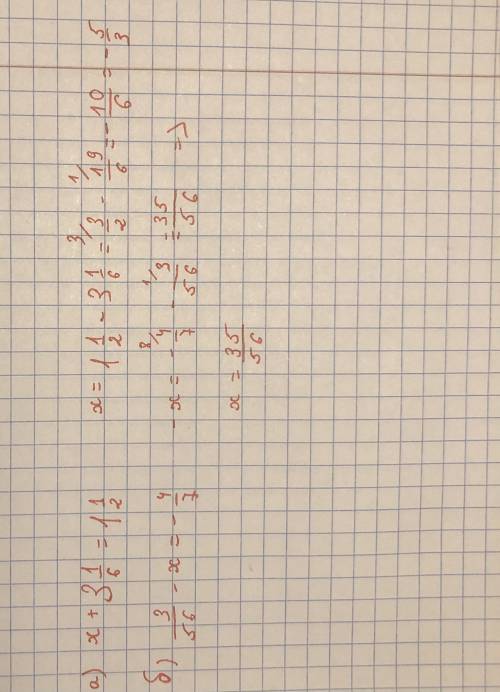 а) x + 3 1/6 = 1 1/2 x = 1 1/2 - 3 1/6 = 3/ 3/2 - 1/ 19/6 = - 10/6 = - 5/3
б) 3/56 - x = - 4/7 - x = - 8/ 4/7 - 1/ 3/56 = 35/56 =>
x = 35/56